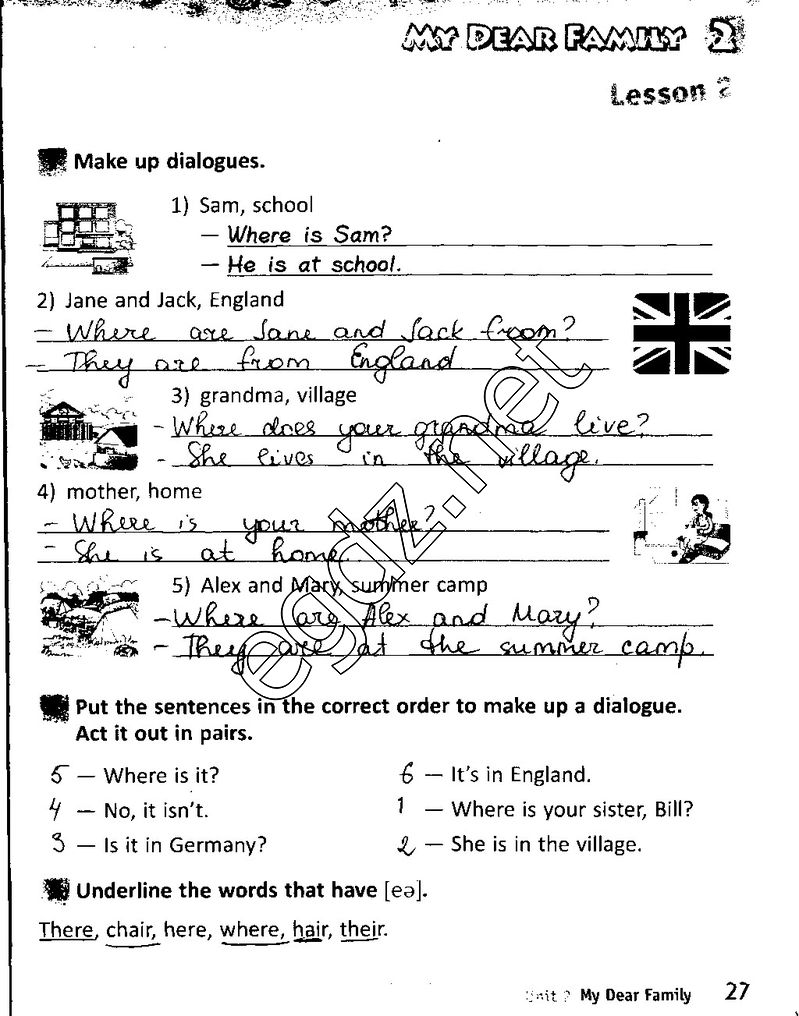 MY DEAR FAMILY 2
Lesson 2
Make up dialogues.
1) Sam, school
– Where is Sam?
– He is at school.
2) Jane and Jack, England
– Where are Jane and Jack from?
– They are from England
3) grandma, village
- Where does your grandma live?
- She lives in the village.
4) mother, home
– Where is your mother?
– She is at home.
5) Alex and Mary, summer camp
– Where are Alex and Mary?
– They are at the summer camp.
egdz.net
Put the sentences in the correct order to make up a dialogue.
Act it out in pairs.
5 — Where is it?
4 — No, it isn't.
3 — Is it in Germany?
6 — It's in England.
1 — Where is your sister, Bill?
2 — She is in the village.
Underline the words that have [eə].
There, chair, here, where, hair, their.
Unit 2 My Dear Family 27